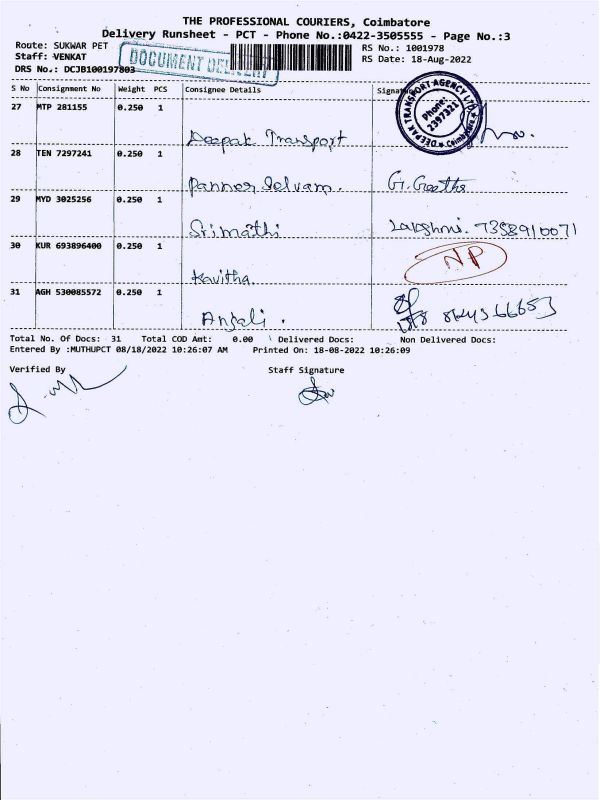 THE PROFESSIONAL COURIERS, Coimbatore
Delivery Runsheet - PCT - Phone No.:0422-3505555 - Page No.:3
Route: SUKWAR PET
Staff: VENKAT
DRS No.: DCJB100197803
DOCUMENT
RS No.: 1001978
RS Date: 18-Aug-2022
S No Consignment No Weight PCS Consignee Details
27 MTP 281155 0.250 1
Deepak Transport
DEEPAK TRANSPORT AGENCY LTD. Coimbatore
Phone: 2397321
28 TEN 7297241 0.250 1
Panner Selvam. G. Geetha
29 MYD 3025256 0.250 1
Srimathi Lakshmi. 7358910071
30 KUR 693896400 0.250 1
Kavitha. NP
31 AGH 530085572 0.250 1
Anjali.
Total No. Of Docs: 31 Total COD Amt: 0.00 Delivered Docs: Non Delivered Docs:
Entered By :MUTHUPCT 08/18/2022 10:26:07 AM Printed On: 18-08-2022 10:26:09
Verified By Staff Signature